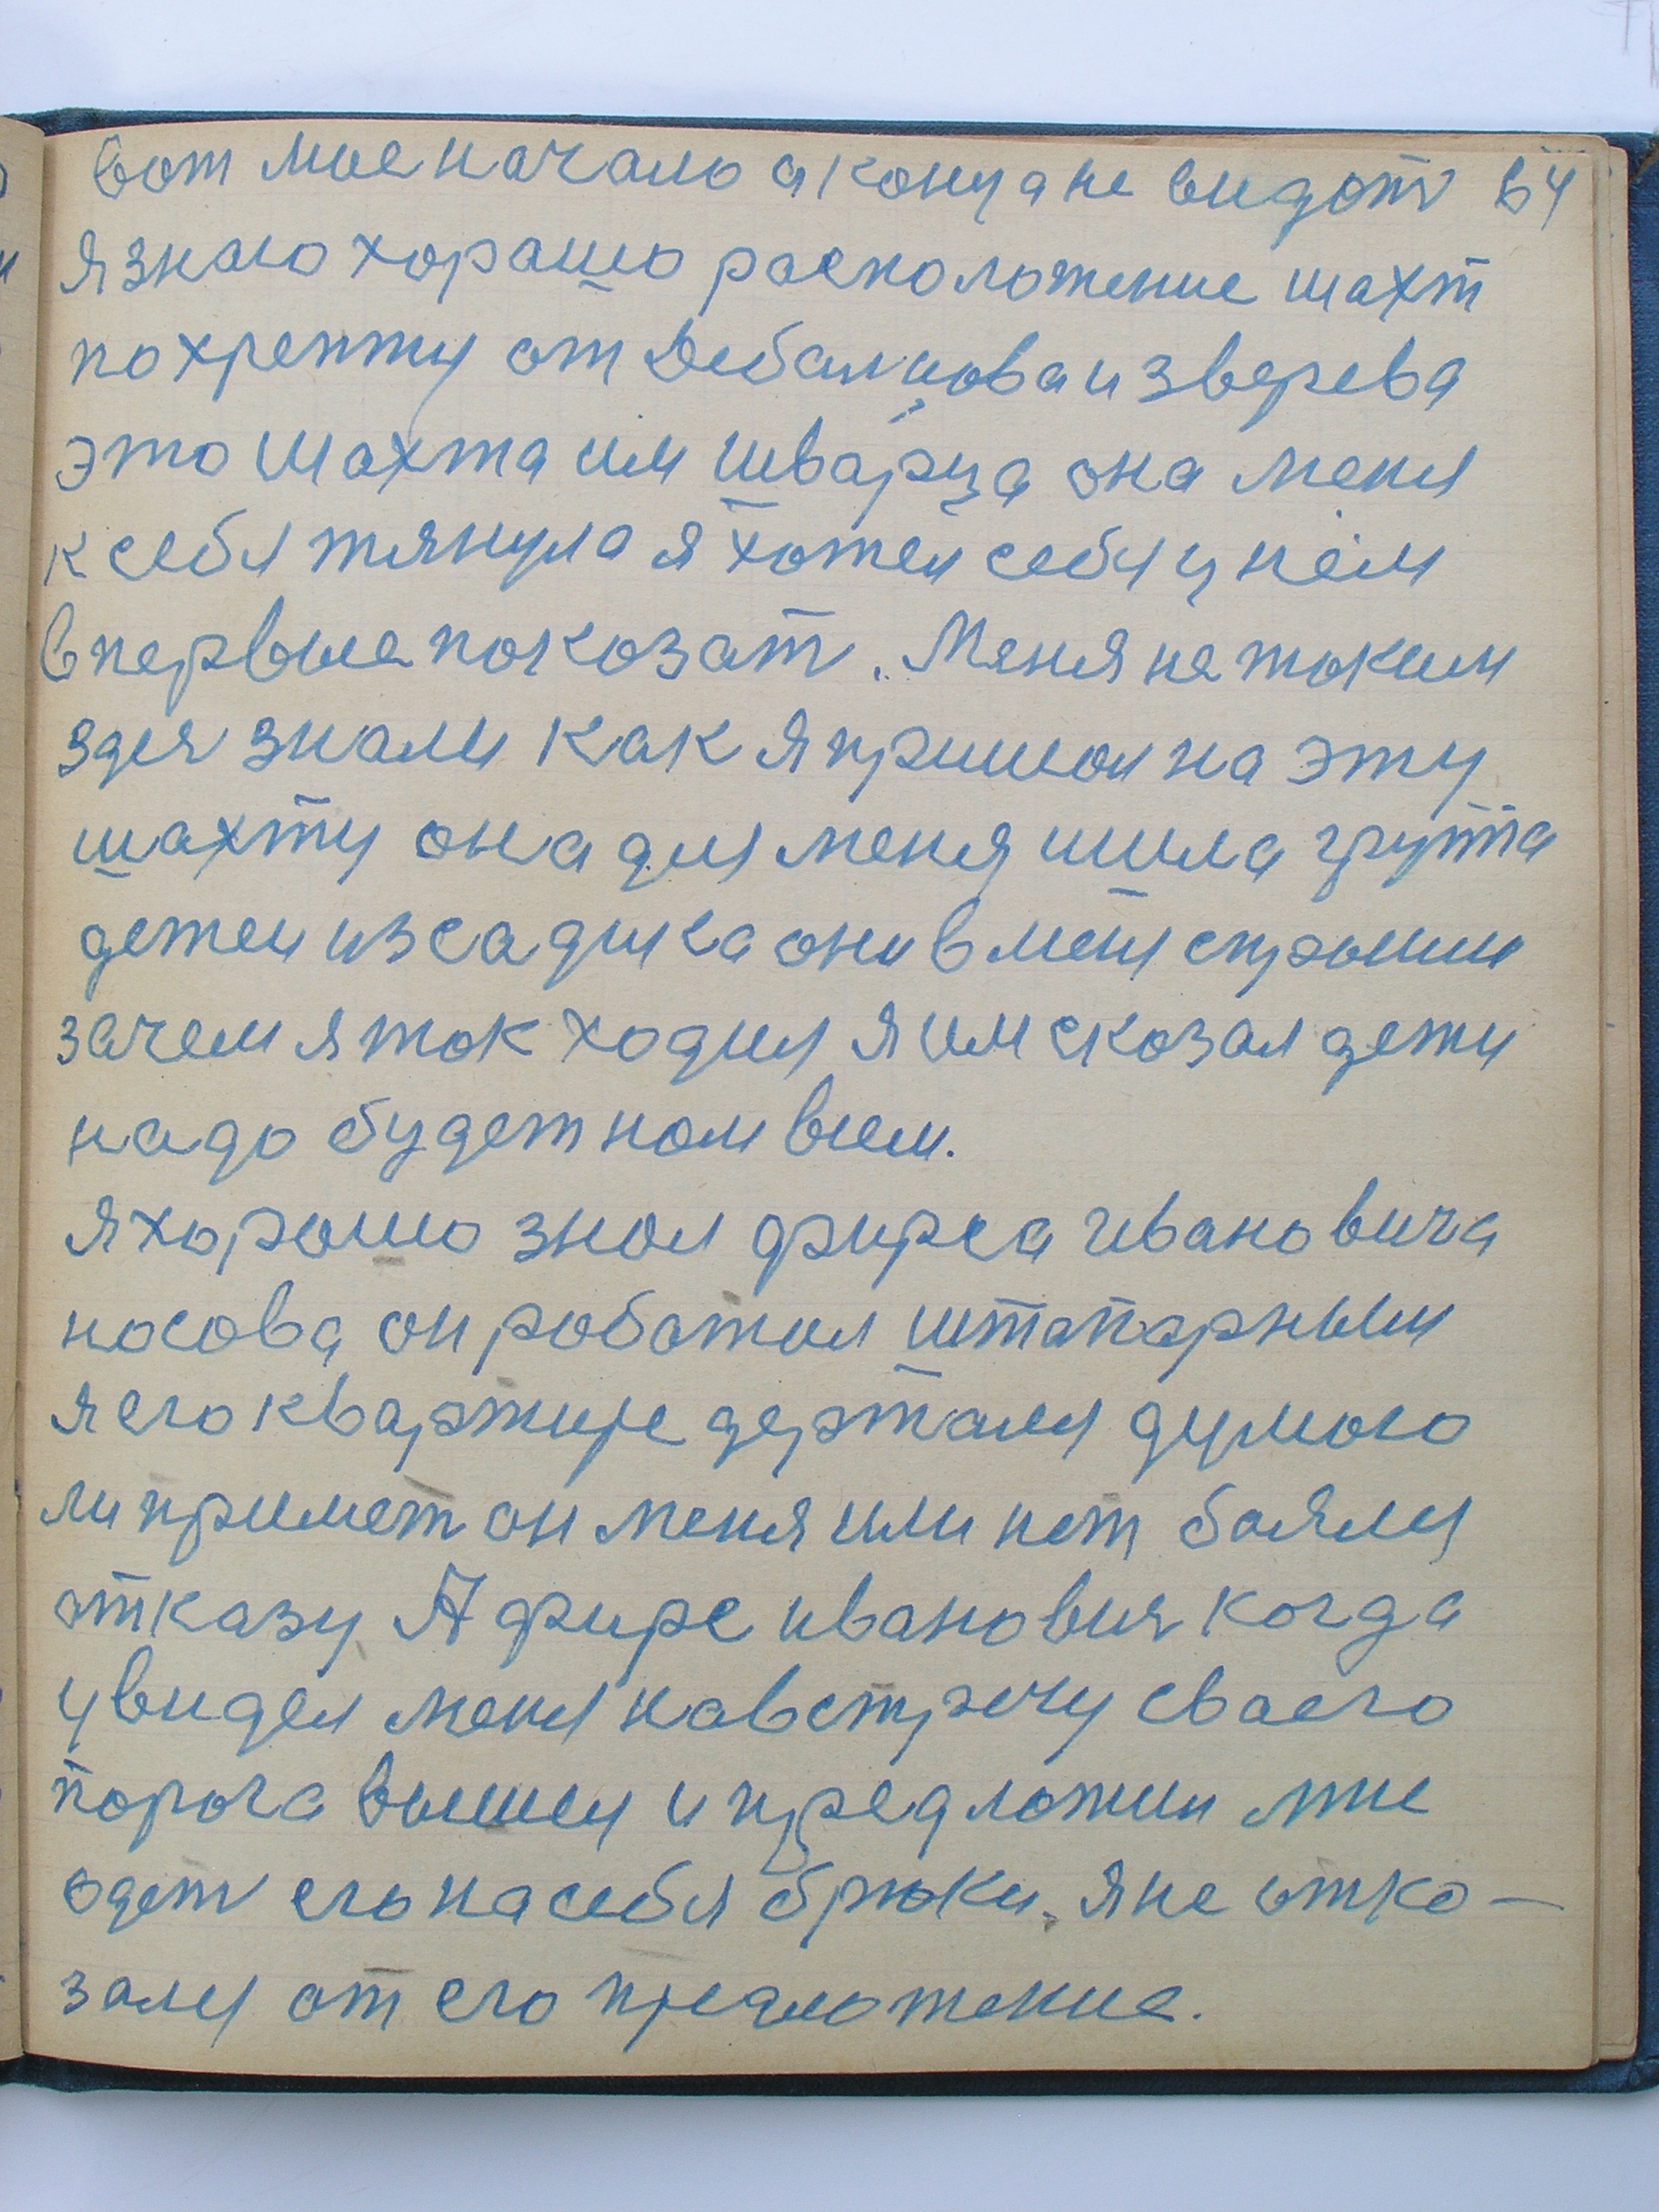 вот мое начало а конца не видать 64
я знаю хорашо росположение шахт
по хрепту от Дебальцова и зверева
это шахта им шварца она меня
к себя тянула я хотел себя у нем
впервые покозать. Меня не токим
здеся знали как я пришол на эту
шахту она для меня шила группа
детеи из садика они в меня спрошии
зачем я ток ходил я им скозал дети
надо будет ном всем.
я хорошо знол фирса ивановича
носова он роботал штапарным
я его квартире держался думою
ли примет он меня или нет боялся
отказу А фирс ивановичь когда
увидел меня на встречу сваего
порога вышел и предложил мне
одеть его на себя брюки. я не отко-
зался от его предложение.